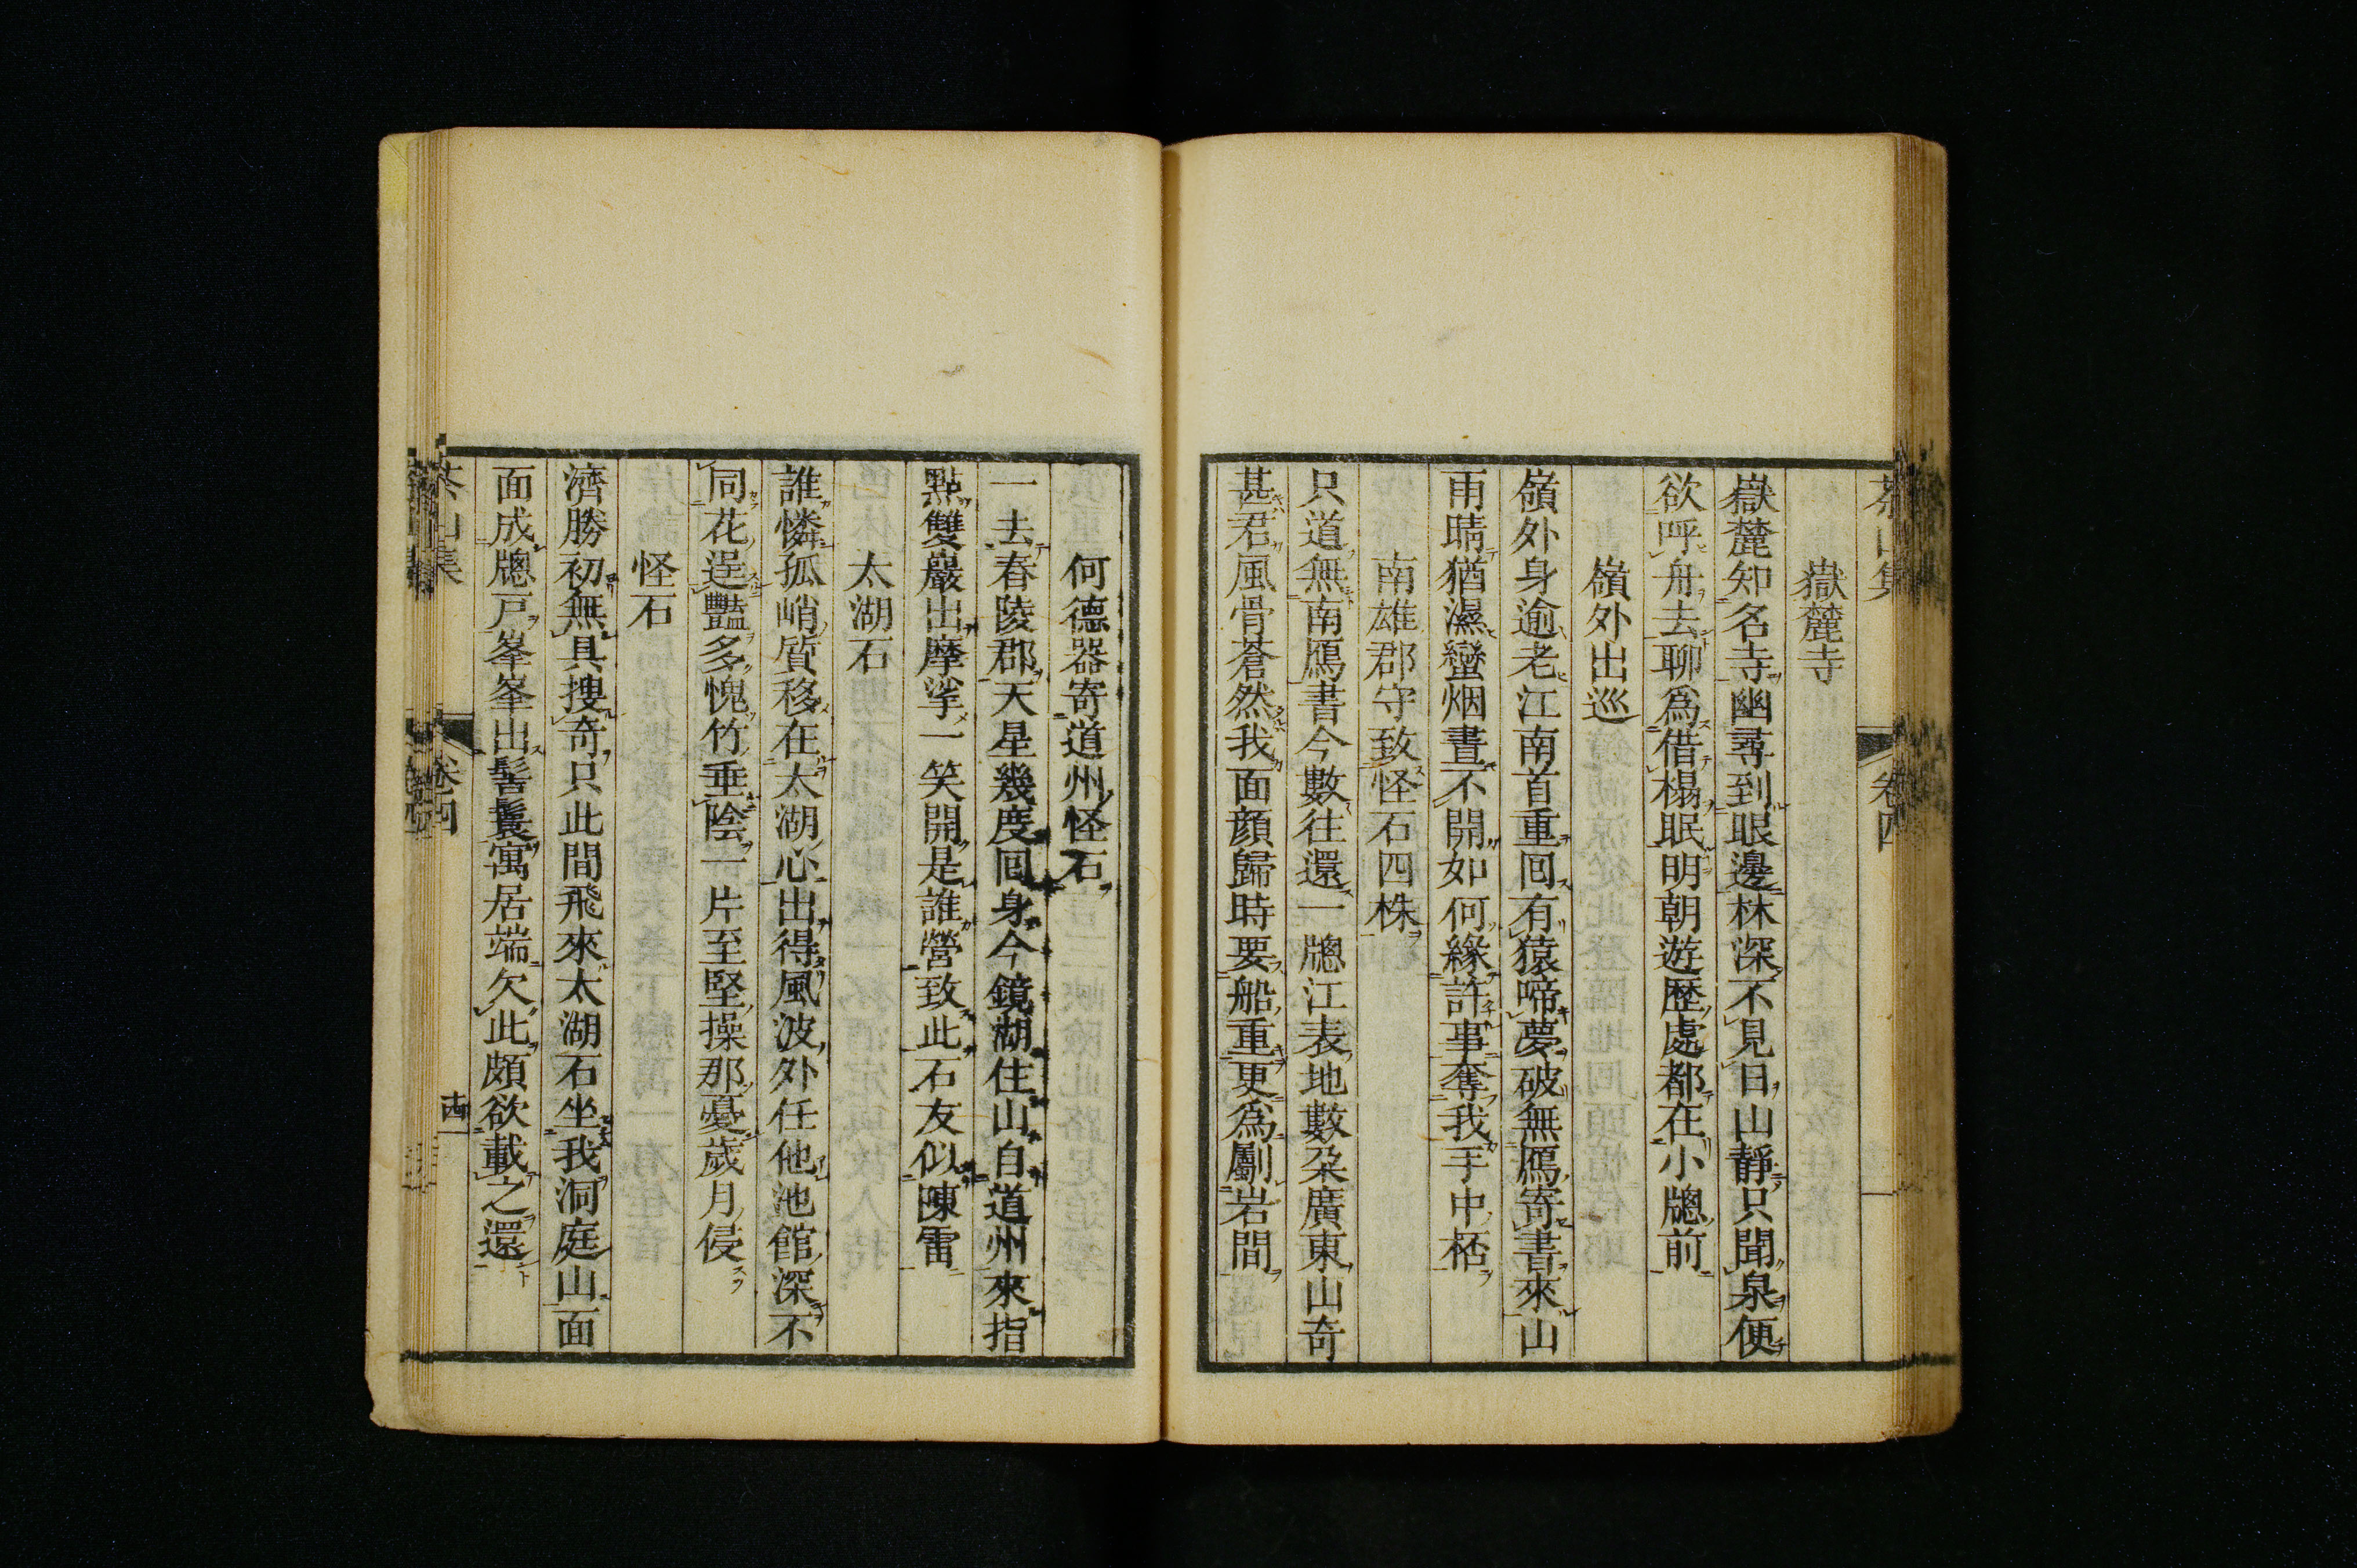 嶽麓寺
嶽麓知名寺幽尋到眼邊林深不見日山靜只聞泉便
欲呼舟去聊爲借榻眠明朝遊歷處都在小牕前
嶺外出巡
嶺外身逾老江南首重回有猿啼夢破無鴈寄書來山
雨晴猶濕蠻烟晝不開如何緣許事奪我手中桮
南雄郡守致怪石四株
只道無南鴈書今數往還一牕江表地數朶廣東山奇
甚君風骨蒼然我面顔歸時要船重更爲劚岩間
何德器寄道州怪石
一去春陵郡天星幾度回身今鏡湖住山自道州來指
點雙巖出摩挲一笑開是誰營致此石友似陳雷
太湖石
誰憐孤峭質移在太湖心出得風波外任他池館深不
同花逞豔多愧竹垂陰一片至堅操那憂歲月侵
怪石
濟勝初無具搜奇只此間飛來太湖石坐我洞庭山面
面成牕戸峯峯出髻鬟寓居端欠此頗欲載之還
卷四
十四